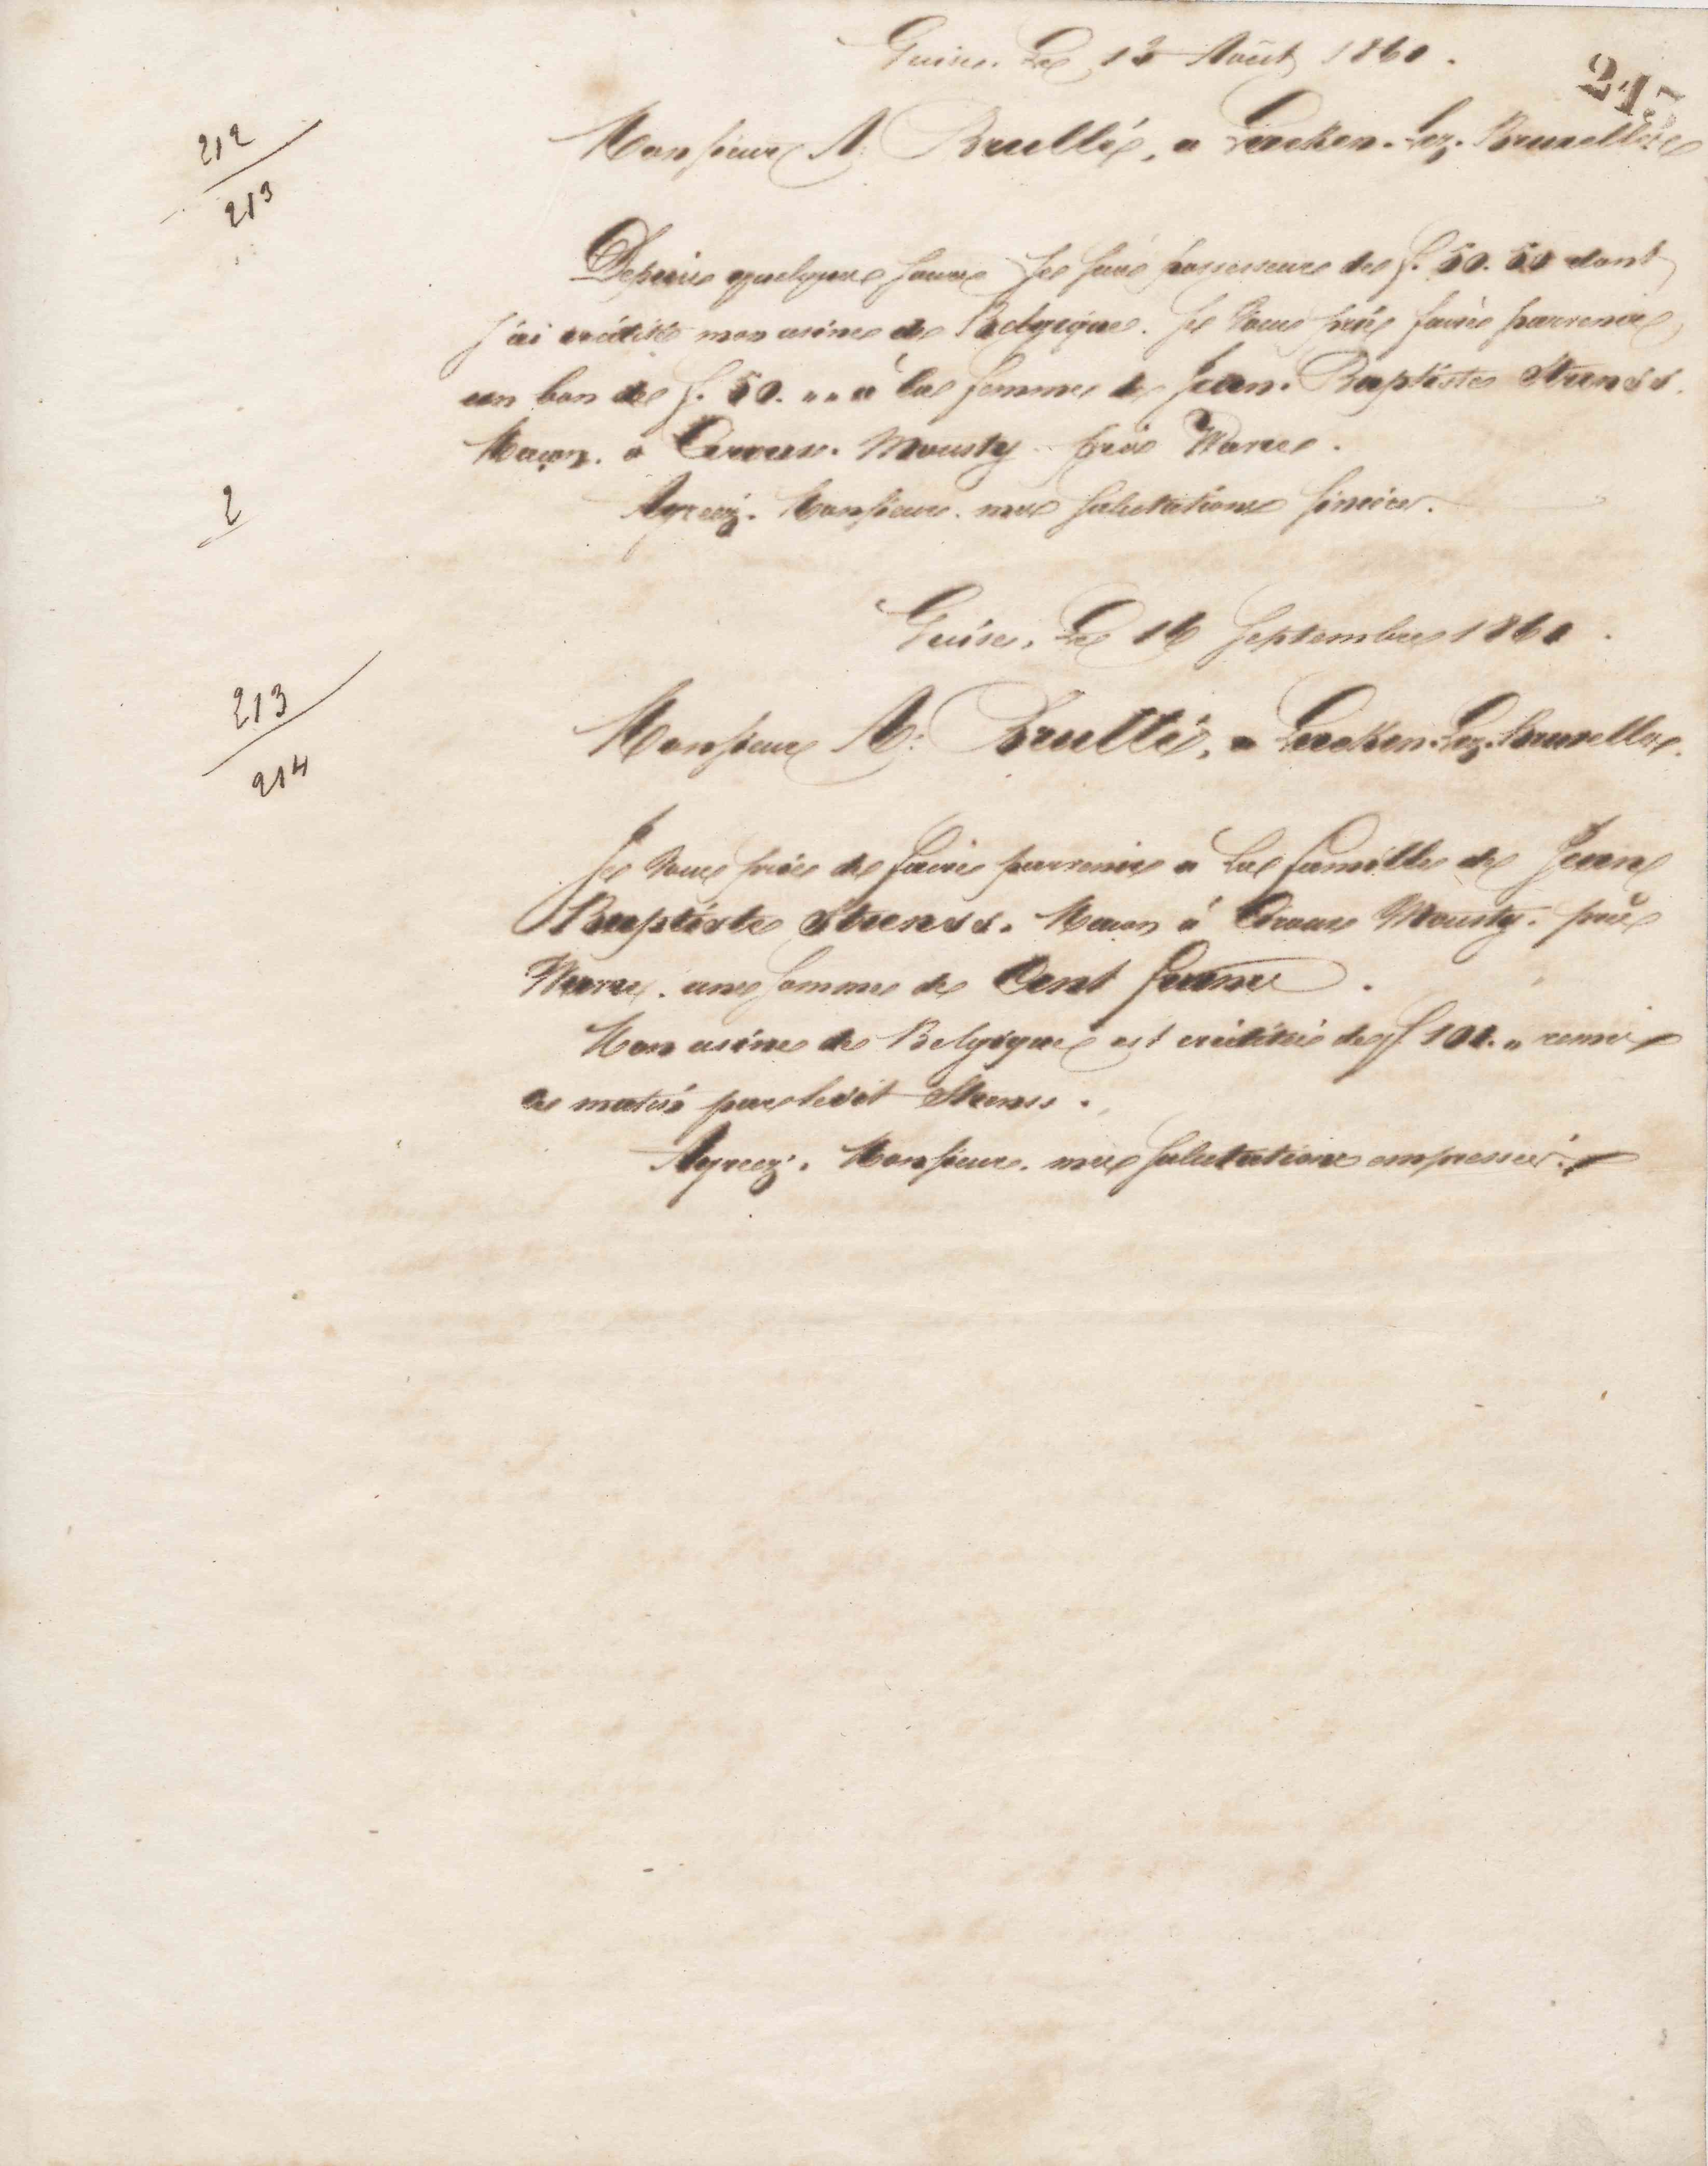 Guise, Le 13 Août 1860.
213
Monsieur A: Brullé, a Laeken-Lez-Bruxelles
212
213
Depuis quelques jours je suis possesseur de f. 50.50 dont
j'ai crédité mon usine de Belgique. Je vous prie faire parvenir
un bon de f. 50. „ „ à la femme de Jean-Baptiste Strenss.
Maçon. a Ceroux-Mousty près Wavre.
2
Agréez. Monsieur. mes salutations sincères.
Guise, Le 16 Septembre 1860.
213
214
Monsieur A: Brullé, a Laeken-Lez-Bruxelles.
Je vous prie de faire parvenir a la famille de Jean
Baptiste Strenss. Maçon à Ceroux Mousty. près
Wavre. une somme de Cent francs.
Mon usine de Belgique est créditée de f 101. „ remis
ce matin par ledit Strenss.
Agréez. Monsieur. mes salutations empressées.